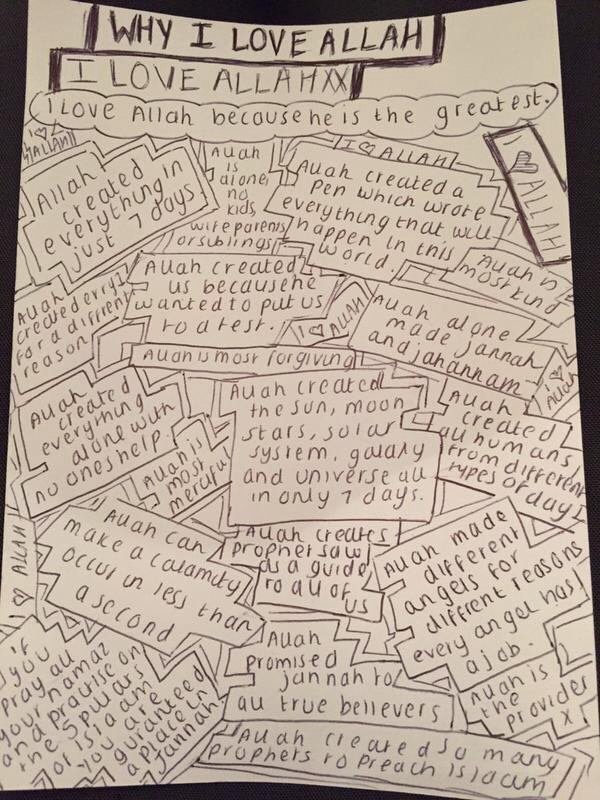 WHY I LOVE ALLAH
I LOVE ALLAH XX
I Love Allah because he is the greatest.
I ♡ ALLAH
Allah
created
everything in
just 7 days
Allah
is
alone,
no
kids,
wife parents
or siblings
I ♡ ALLAH
Allah created a
Pen which wrote
everything that will
happen in this
world.
I ♡ ALLAH
Allah is
most kind
Allah
created
for a diffrent
reason
Allah created
us because he
wanted to put us
to a test.
I ♡ ALLAH
Allah alone
made jannah
and jahannam
I ♡
Allah
Allah is most forgiving
Allah
created
everything
alone with
no ones help.
Allah is
most
merciful
Allah created
the sun, moon
stars, solar
system, galaxy
and universe all
in only 7 days.
Allah
created
all humans
from different
types of clay
I ♡ ALLAH
Allah can
make a calamity
occur in less than
a second
Allah creates
prophet saw
as a guide
to all of
us
Allah made
different
angels for
diffrent reasons
every angel has
a job.
If
you
pray all
your namaz
and practise on
the 5 pillars
of islaam
you are
guranteed
a place in
Jannah
Allah
promised
jannah to
all true believers
Allah is
the
provider
x
Allah created so many
prophets to preach islaam